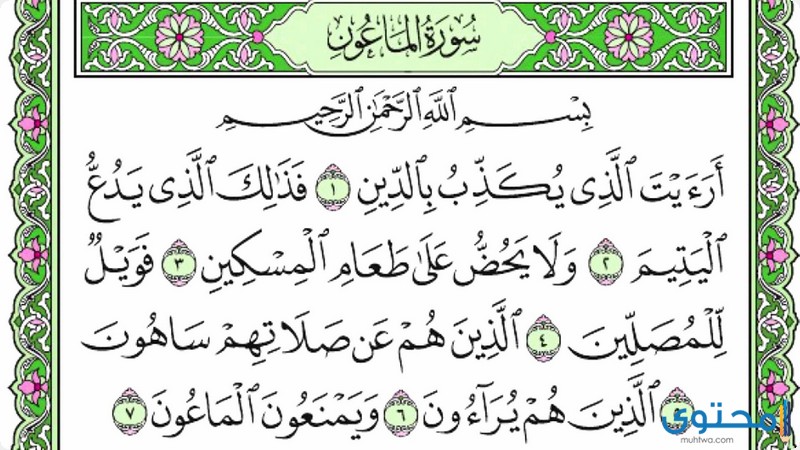 سُورَةُ المَاعُونِ
بِسْمِ ٱللَّهِ ٱلرَّحْمَٰنِ ٱلرَّحِيمِ
أَرَءَيْتَ ٱلَّذِى يُكَذِّبُ بِٱلدِّينِ ١ فَذَٰلِكَ ٱلَّذِى يَدُعُّ
ٱلْيَتِيمَ ٢ وَلَا يَحُضُّ عَلَىٰ طَعَامِ ٱلْمِسْكِينِ ٣ فَوَيْلٌ
لِّلْمُصَلِّينَ ٤ ٱلَّذِينَ هُمْ عَن صَلَاتِهِمْ سَاهُونَ
ٱلَّذِينَ هُمْ يُرَآءُونَ ٦ وَيَمْنَعُونَ ٱلْمَاعُونَ ٧
محتوى
muhtwa.com